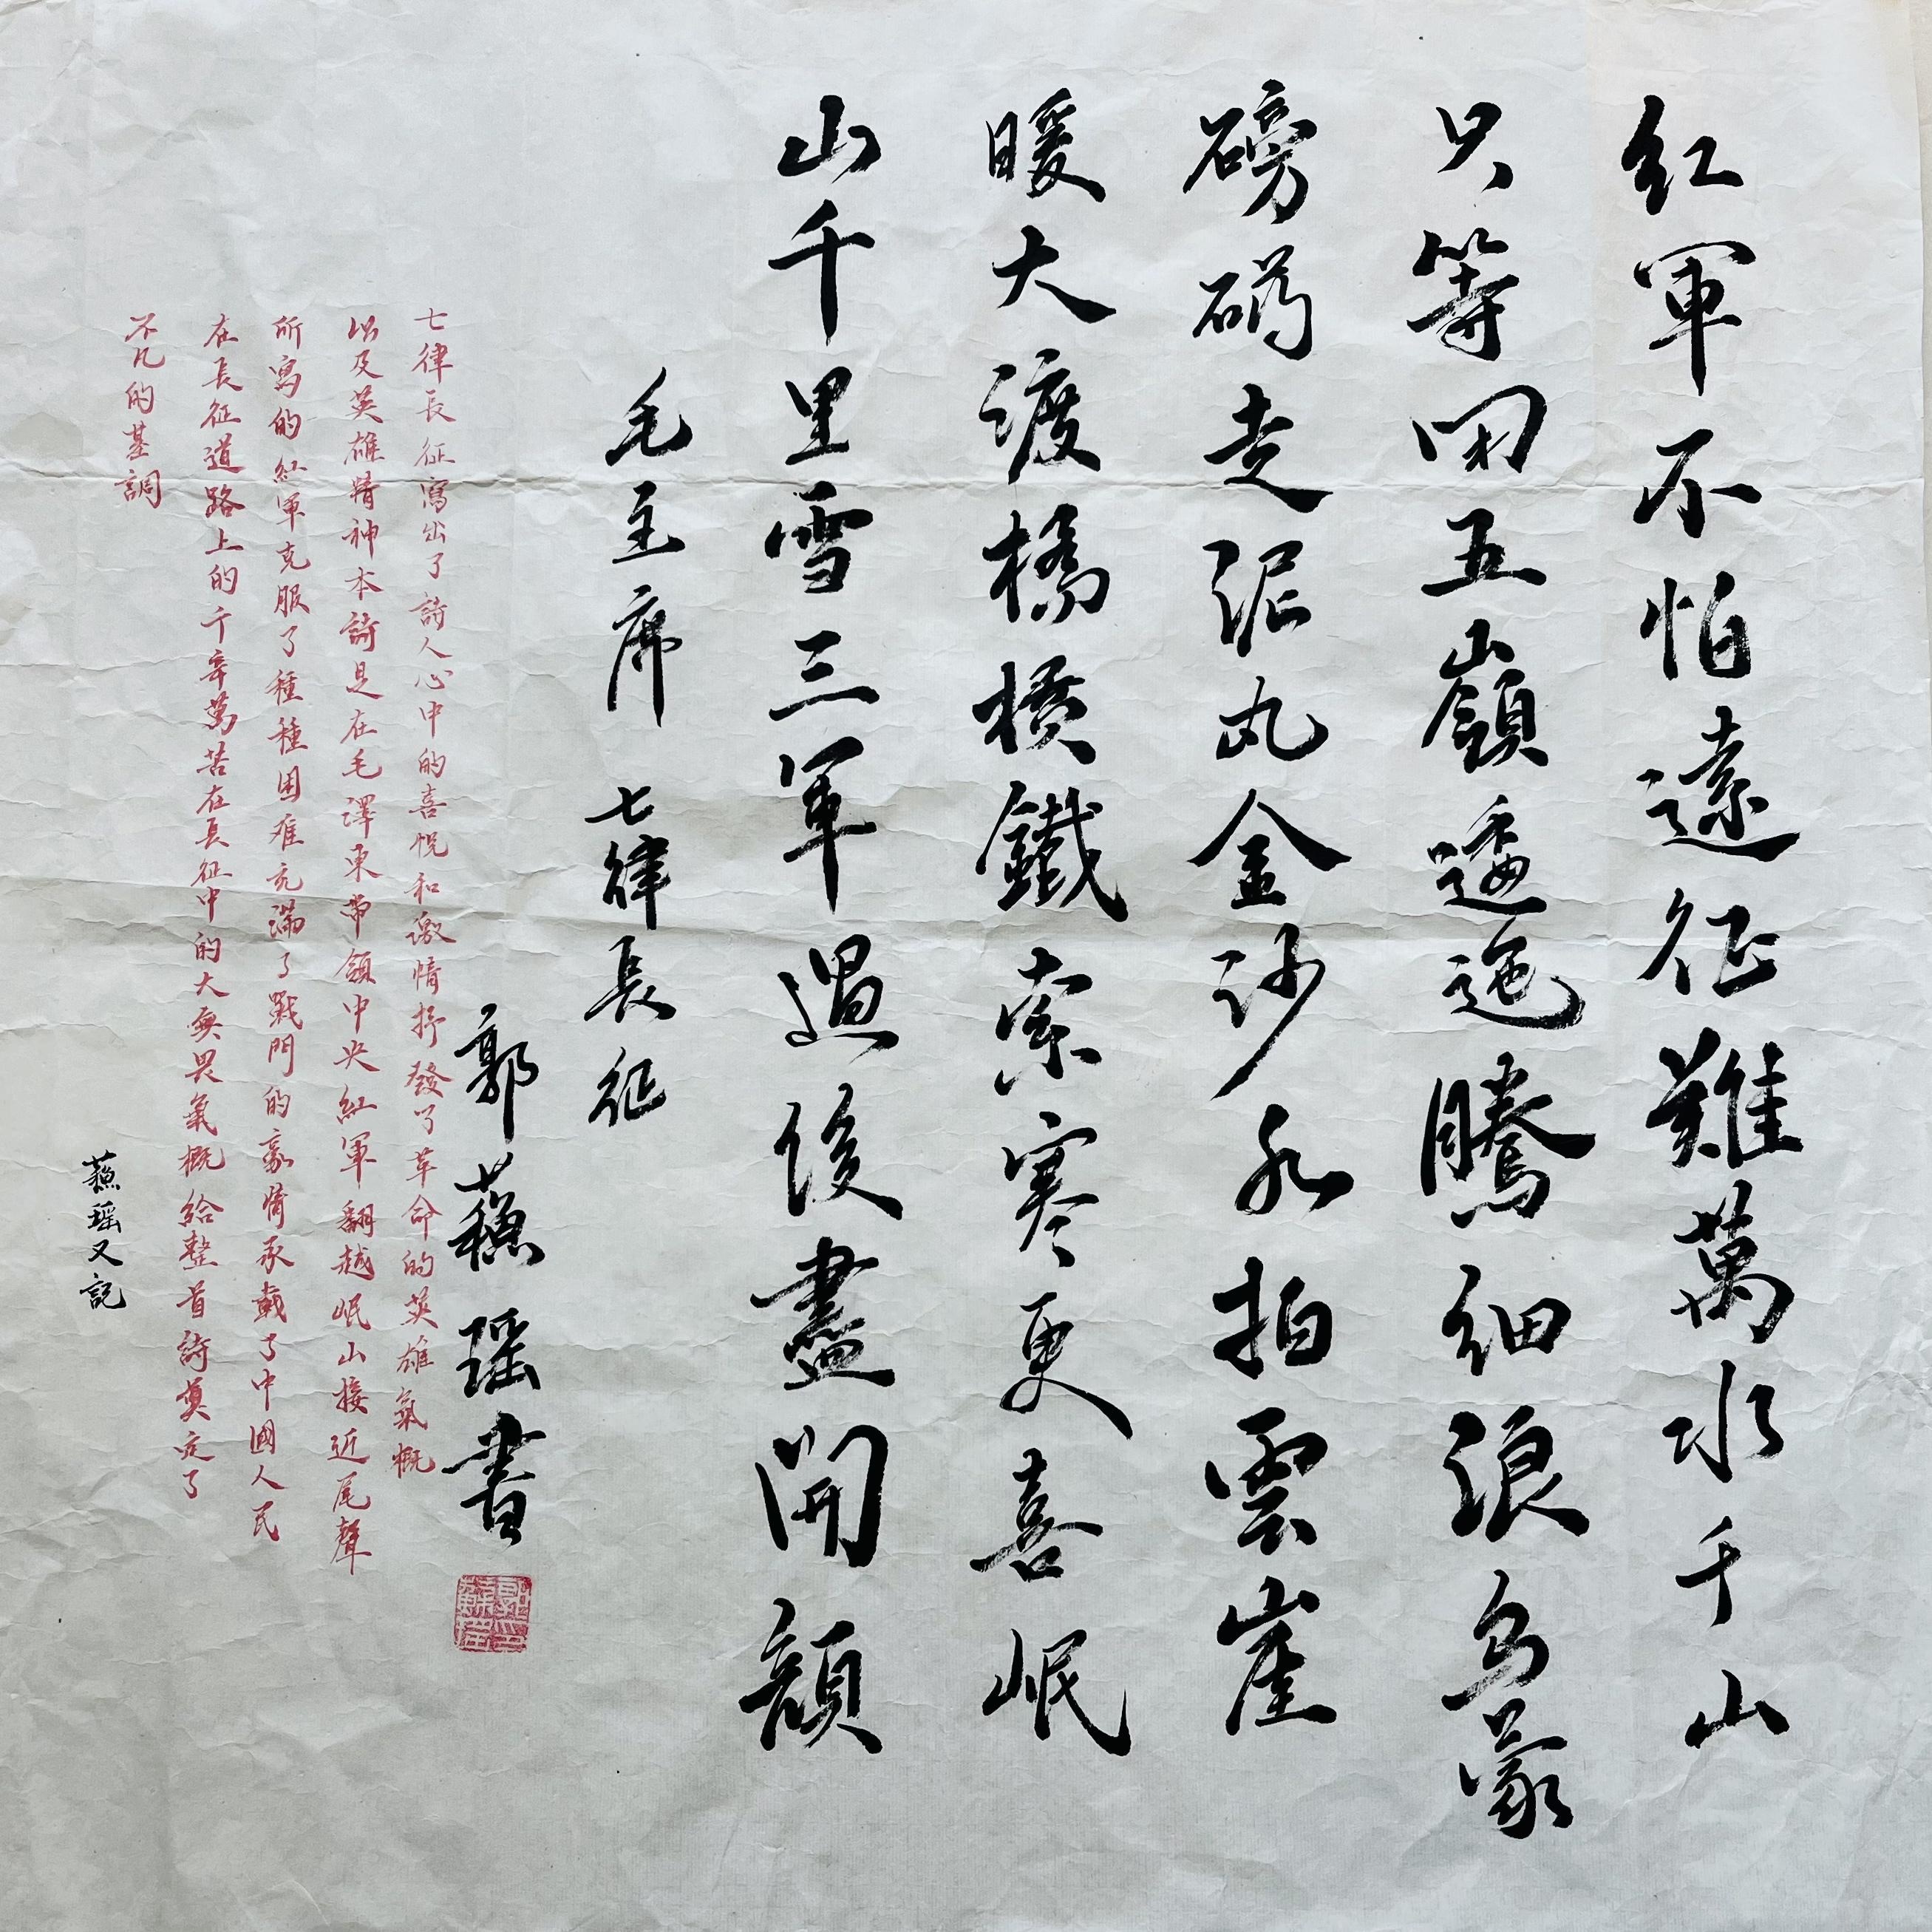 紅軍不怕遠征難萬水千山
只等閑五嶺逶迤騰細浪烏蒙
磅礴走泥丸金沙水拍雲崖
暖大渡橋橫鐵索寒更喜岷
山千里雪三軍過後盡開顏
毛主席 七律長征
郭蘓瑶書
七律長征寫出了詩人心中的喜悅和激情抒發了革命的英雄氣概
以及英雄精神本詩是在毛澤東帶領中央紅軍翻越岷山接近尾聲
所寫的紅軍克服了種種困难充满了戰鬥的豪情承載了中國人民
在長征道路上的千辛萬苦在長征中的大無畏氣概給整首詩奠定了
不凡的基調
蘓瑶又記